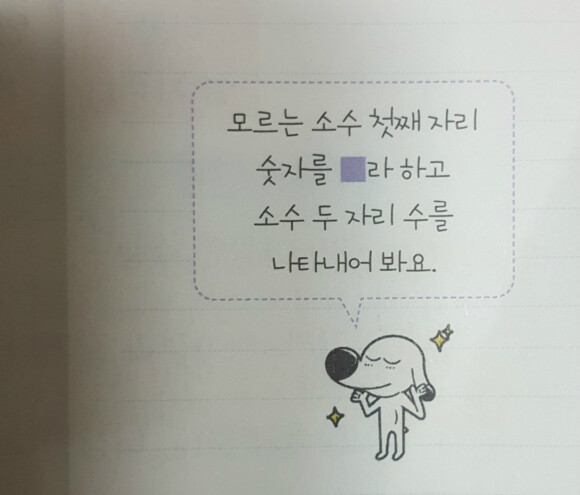 모르는 소수 첫째 자리
숫자를 ■라 하고
소수 두 자리 수를
나타내어 봐요.